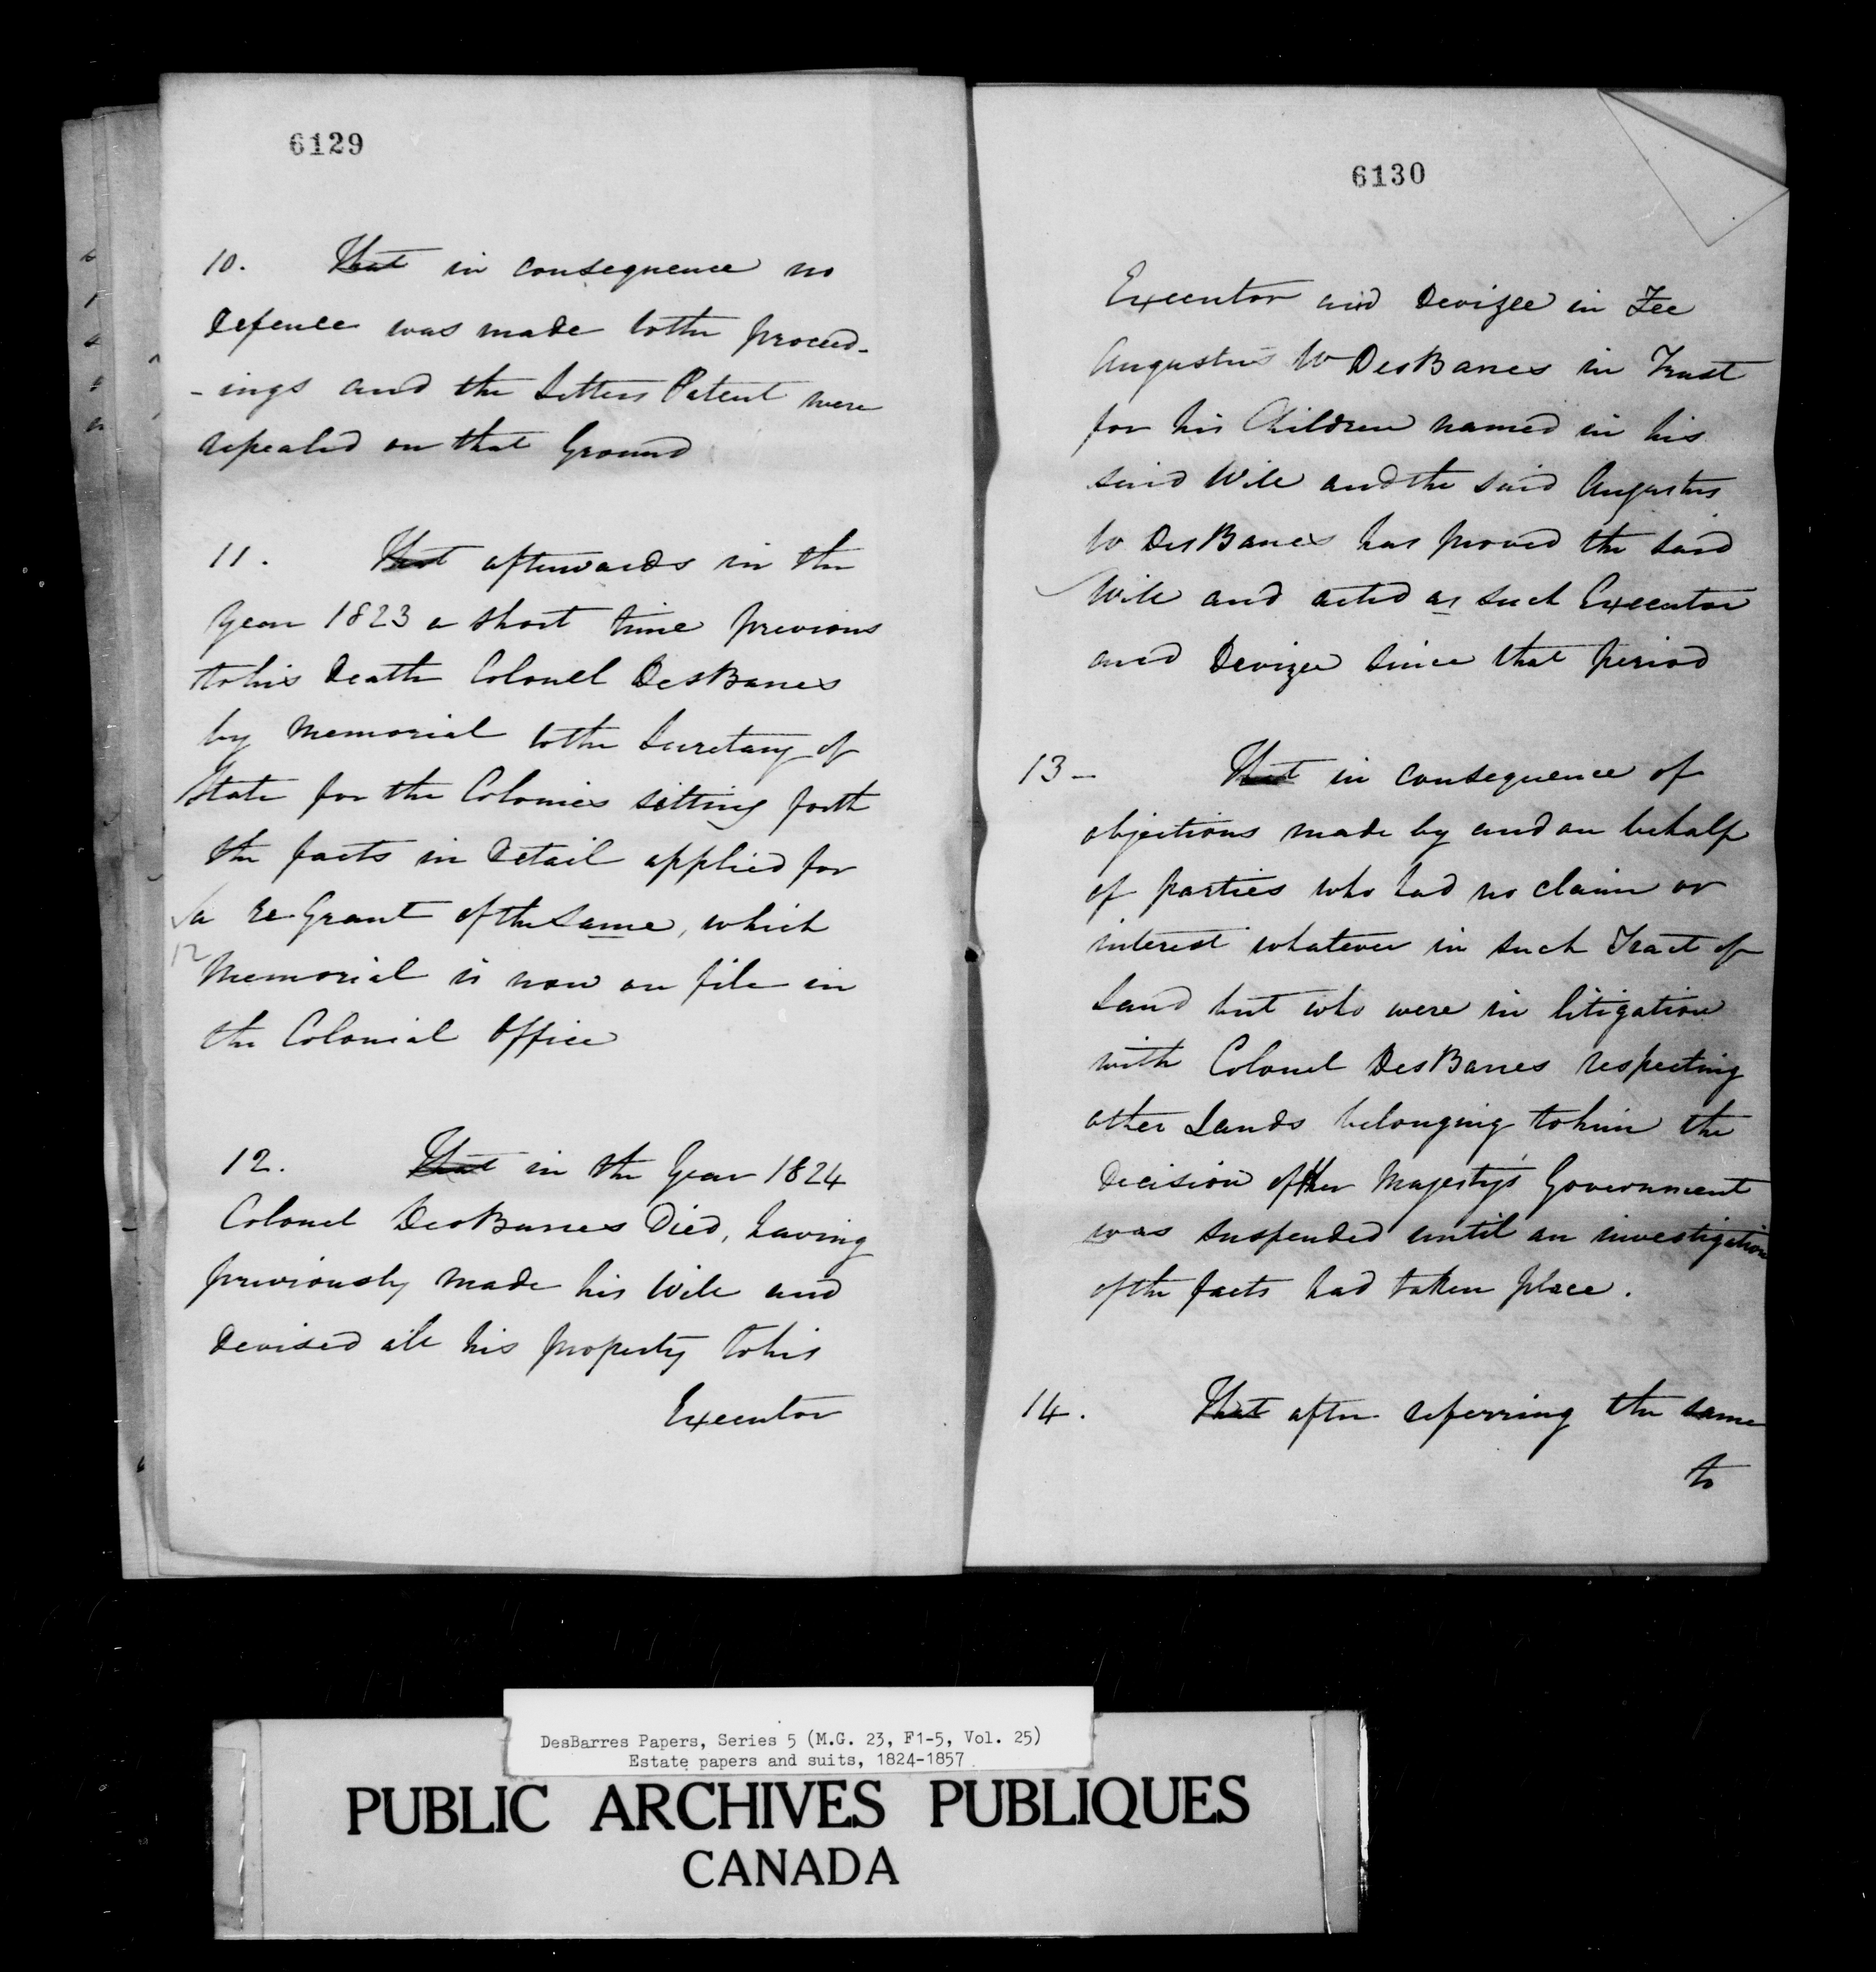 6129
10. That in consequence no
Defence was made to the proceed-
-ings and the Letters Patent were
repealed on that Ground
11. That afterwards in the
Year 1823 a short time previous
to his Death Colonel DesBarres
by Memorial to the Secretary of
State for the Colonies setting forth
the facts in Detail applied for
a re Grant of the same, which
12
Memorial is now on file in
the Colonial Office
12. That in the Year 1824
Colonel DesBarres Died, having
previously made his Will and
Devised all his property to his
Executor
6130
Executor and Devizee in Fee
Augustus W DesBarres in Trust
for his Children named in his
said Will and the said Augustus
W DesBarres has proved the said
Will and acted as such Executor
and Devizee since that period
13- That in consequence of
objections made by and on behalf
of parties who had no claim or
interest whatever in such Tract of
Land but who were in litigation
with Colonel DesBarres respecting
other Lands belonging to him the
Decision of Her Majesty's Government
was suspended until an investigation
of the facts had taken place.
14. That after referring the same
to
DesBarres Papers, Series 5 (M.G. 23, F1-5, Vol. 25)
Estate papers and suits, 1824-1857
PUBLIC ARCHIVES PUBLIQUES
CANADA